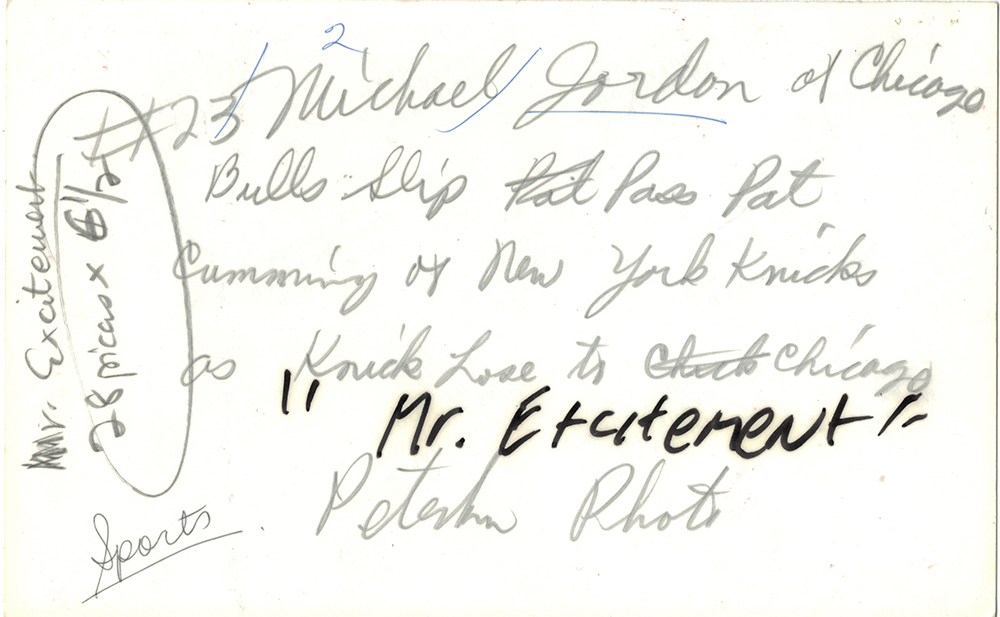 2
#23 Michael Jordon of Chicago
Bulls Slip Pat Pass Pat
Cumming of New York Knicks
as Knick Lose to Chicago
" Mr. Excitement "
Photo
Sports
Mr. Excitement
28 picas x 6 1/2